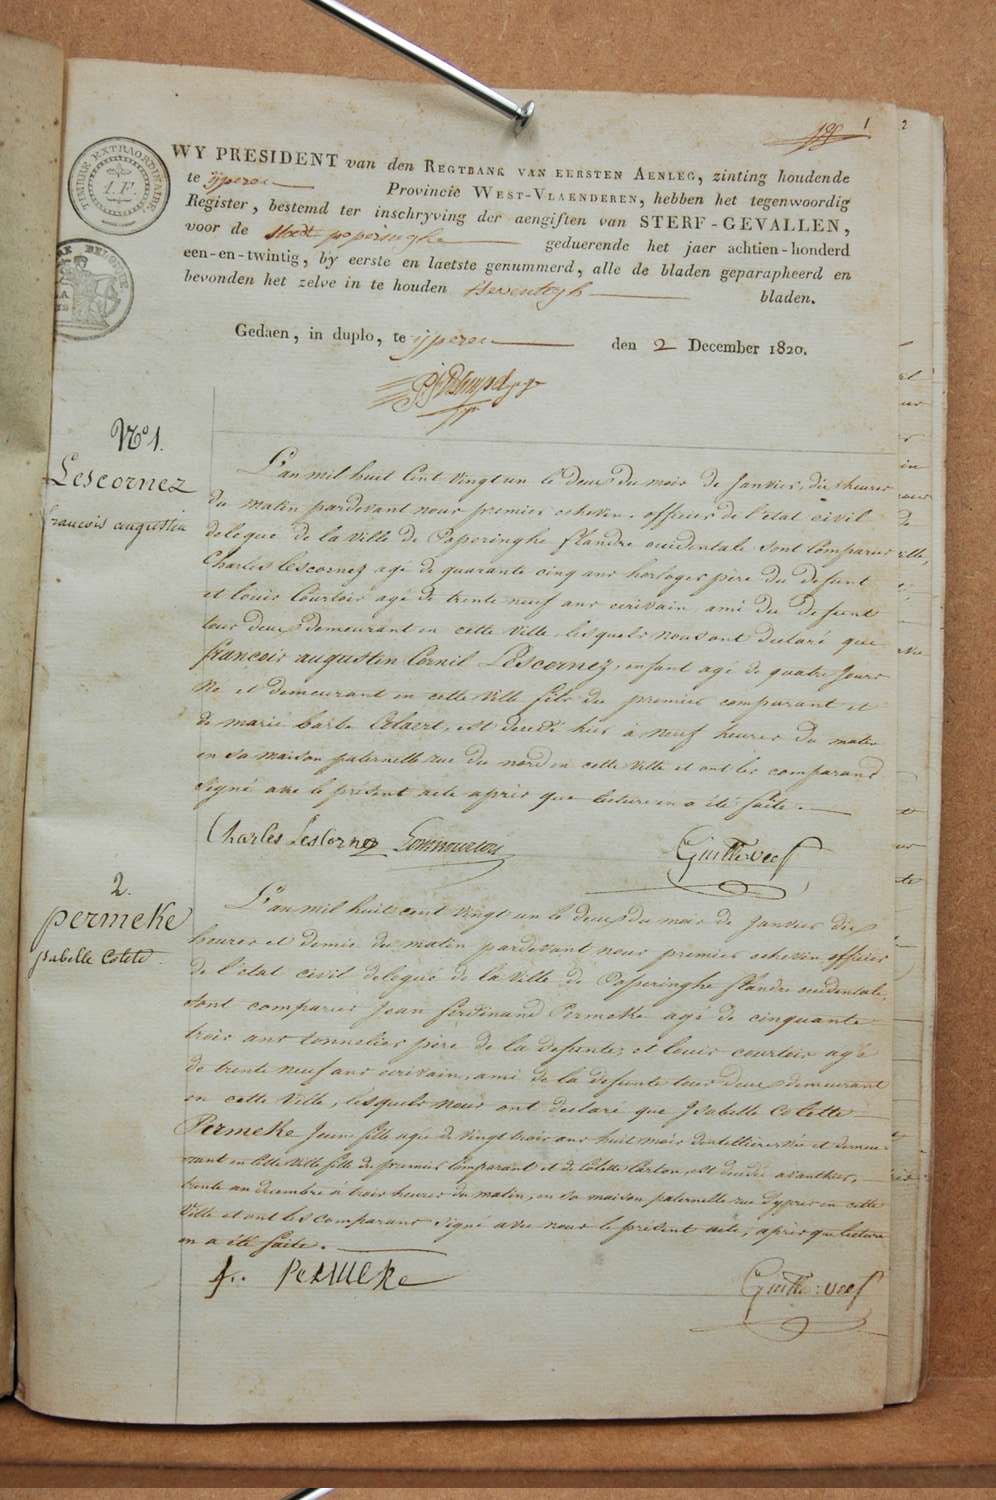 1
2
TIMBRE EXTRAORDINAIRE
1.F.
WY PRESIDENT van den REGTBANK VAN EERSTEN AENLEG, zinting houdende
te ijperen Provincie WEST-VLAENDEREN, hebben het tegenwoordig
Register, bestemd ter inschryving der aengiften van STERF-GEVALLEN,
voor de stad poperinghe geduerende het jaer achtien-honderd
een-en-twintig, by eerste en laetste genummerd, alle de bladen geparapheerd en
bevonden het zelve in te houden seventigh bladen.
Gedaen, in duplo, te ijperen den 2 December 1820.
N° 1.
Lescornez
francois augustin
L'an mil huit Cent vingt un le deux du mois de Janvier, dix heures
du matin pardevant nous premier echevin, officier de l'etat civil
delegué de la ville de Poperinghe flandre occidentale sont Comparus
Charles Lescornez agé de quarante cinq ans horloger père du defunt
et louis Courtois agé de trente neuf ans ecrivain ami du defunt
tous deux demeurant en cette ville, lesquels nous ont declaré que
francois augustin Cornil Lescornez, enfant agé de quatre Jours
né et demeurant en cette ville fils du premier comparant et
de marie barbe Celaert, est decedé hier à neuf heures du matin
en sa maison paternelle rue du nord en cette ville et ont les comparans
signé avec le présent acte après que lecture en a été faite.
Charles Lescornez
2.
permeke
ysabelle Colete
L'an mil huit cent vingt un le deux du mois de Janvier dix
heures et demie du matin pardevant nous premier echevin officier
de l'etat civil delegué de la ville de Poperinghe flandre occidentale,
sont comparus Jean ferdinand Permeke agé de cinquante
trois ans tonnelier père de la defunte, et louis courtois agé
de trente neuf ans ecrivain, ami de la defunte tous deux demeurant
en cette ville, lesquels nous ont declaré que Ysabelle Colette
Permeke Jeune fille agée de vingt trois ans huit mois dentellière née et demeu-
rant en cette ville fille du premier Comparant et de Colette Carton, est decedée avanthier,
trente un decembre à trois heures du matin, en sa maison paternelle rue d'ypres en cette
ville et ont les comparans signé avec nous le présent acte, après que lecture
en a été faite.
f.. Permeke